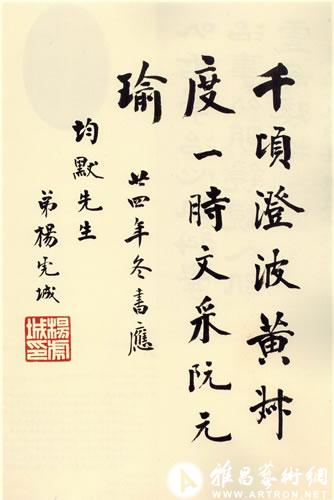 千頃澄波黄叔
度一時文采阮元
瑜
廿四年冬書應
均默先生
弟楊虎城
楊虎
城印
雅昌藝術網
WWW.ARTRON.NET